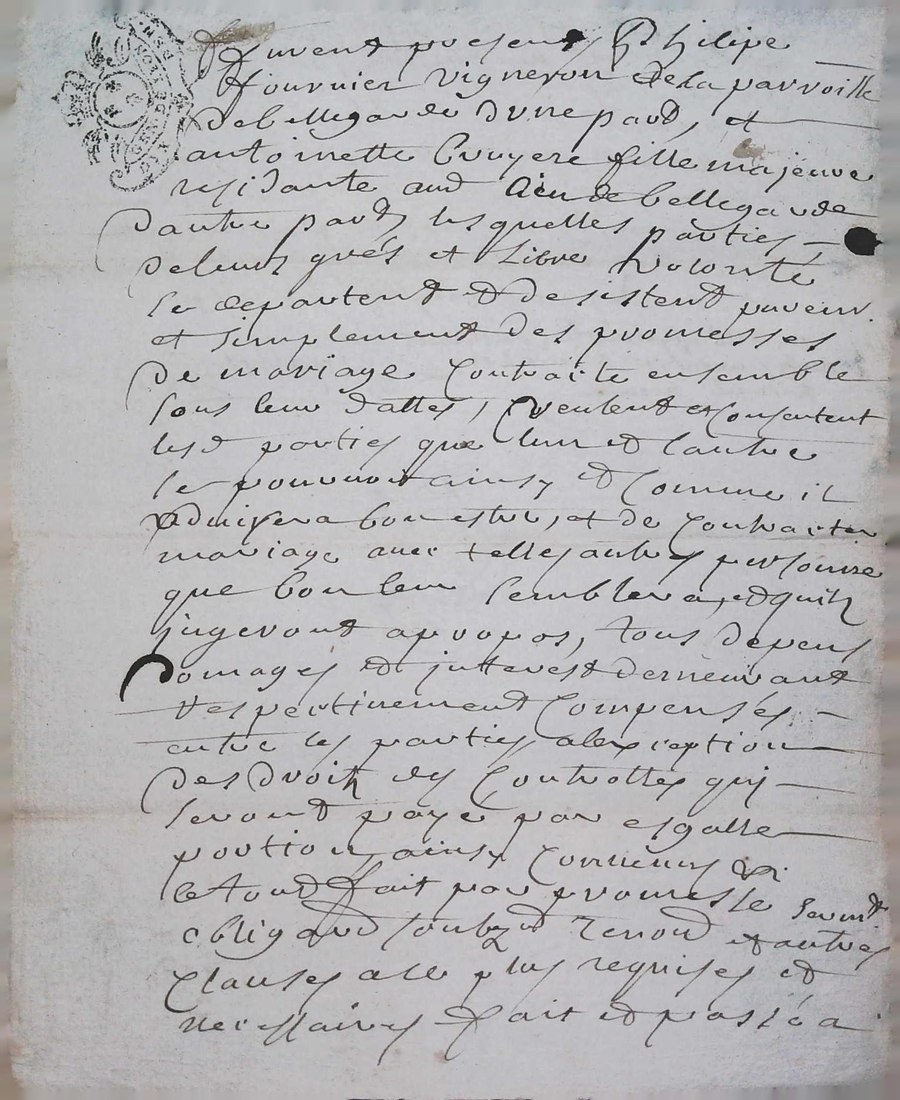 furent presents Philipe
fournier vigneron de la parroisse
de bellegarde dune pard, et
antoinette bruyere fille majeure
residante aud lieu de bellegarde
dautre pard lesquelles parties
de leurs grés et libre volonté
se departent et desistent purem.
et simplement des promesses
de mariage contraité ensemble
sous leur dattes, veulent et consentent
lesd parties que lun et lautre
se pourvoit ainsy et comme il
advisera bon estre, et de contraiter
mariage avec telles autres personne
que bon leur semblera, et quilz
jugeront apropos, tous depens
domages et jnterest demeurant
respectivement compensés
entre les parties alexception
des droits des controlles qui
seront payé par esgalle
portion, ainsy convenus &.
le tout fait par promesse serment
obligaon soubz et renon et autres
clauses ace plus requises et
necessaires fait et passé a